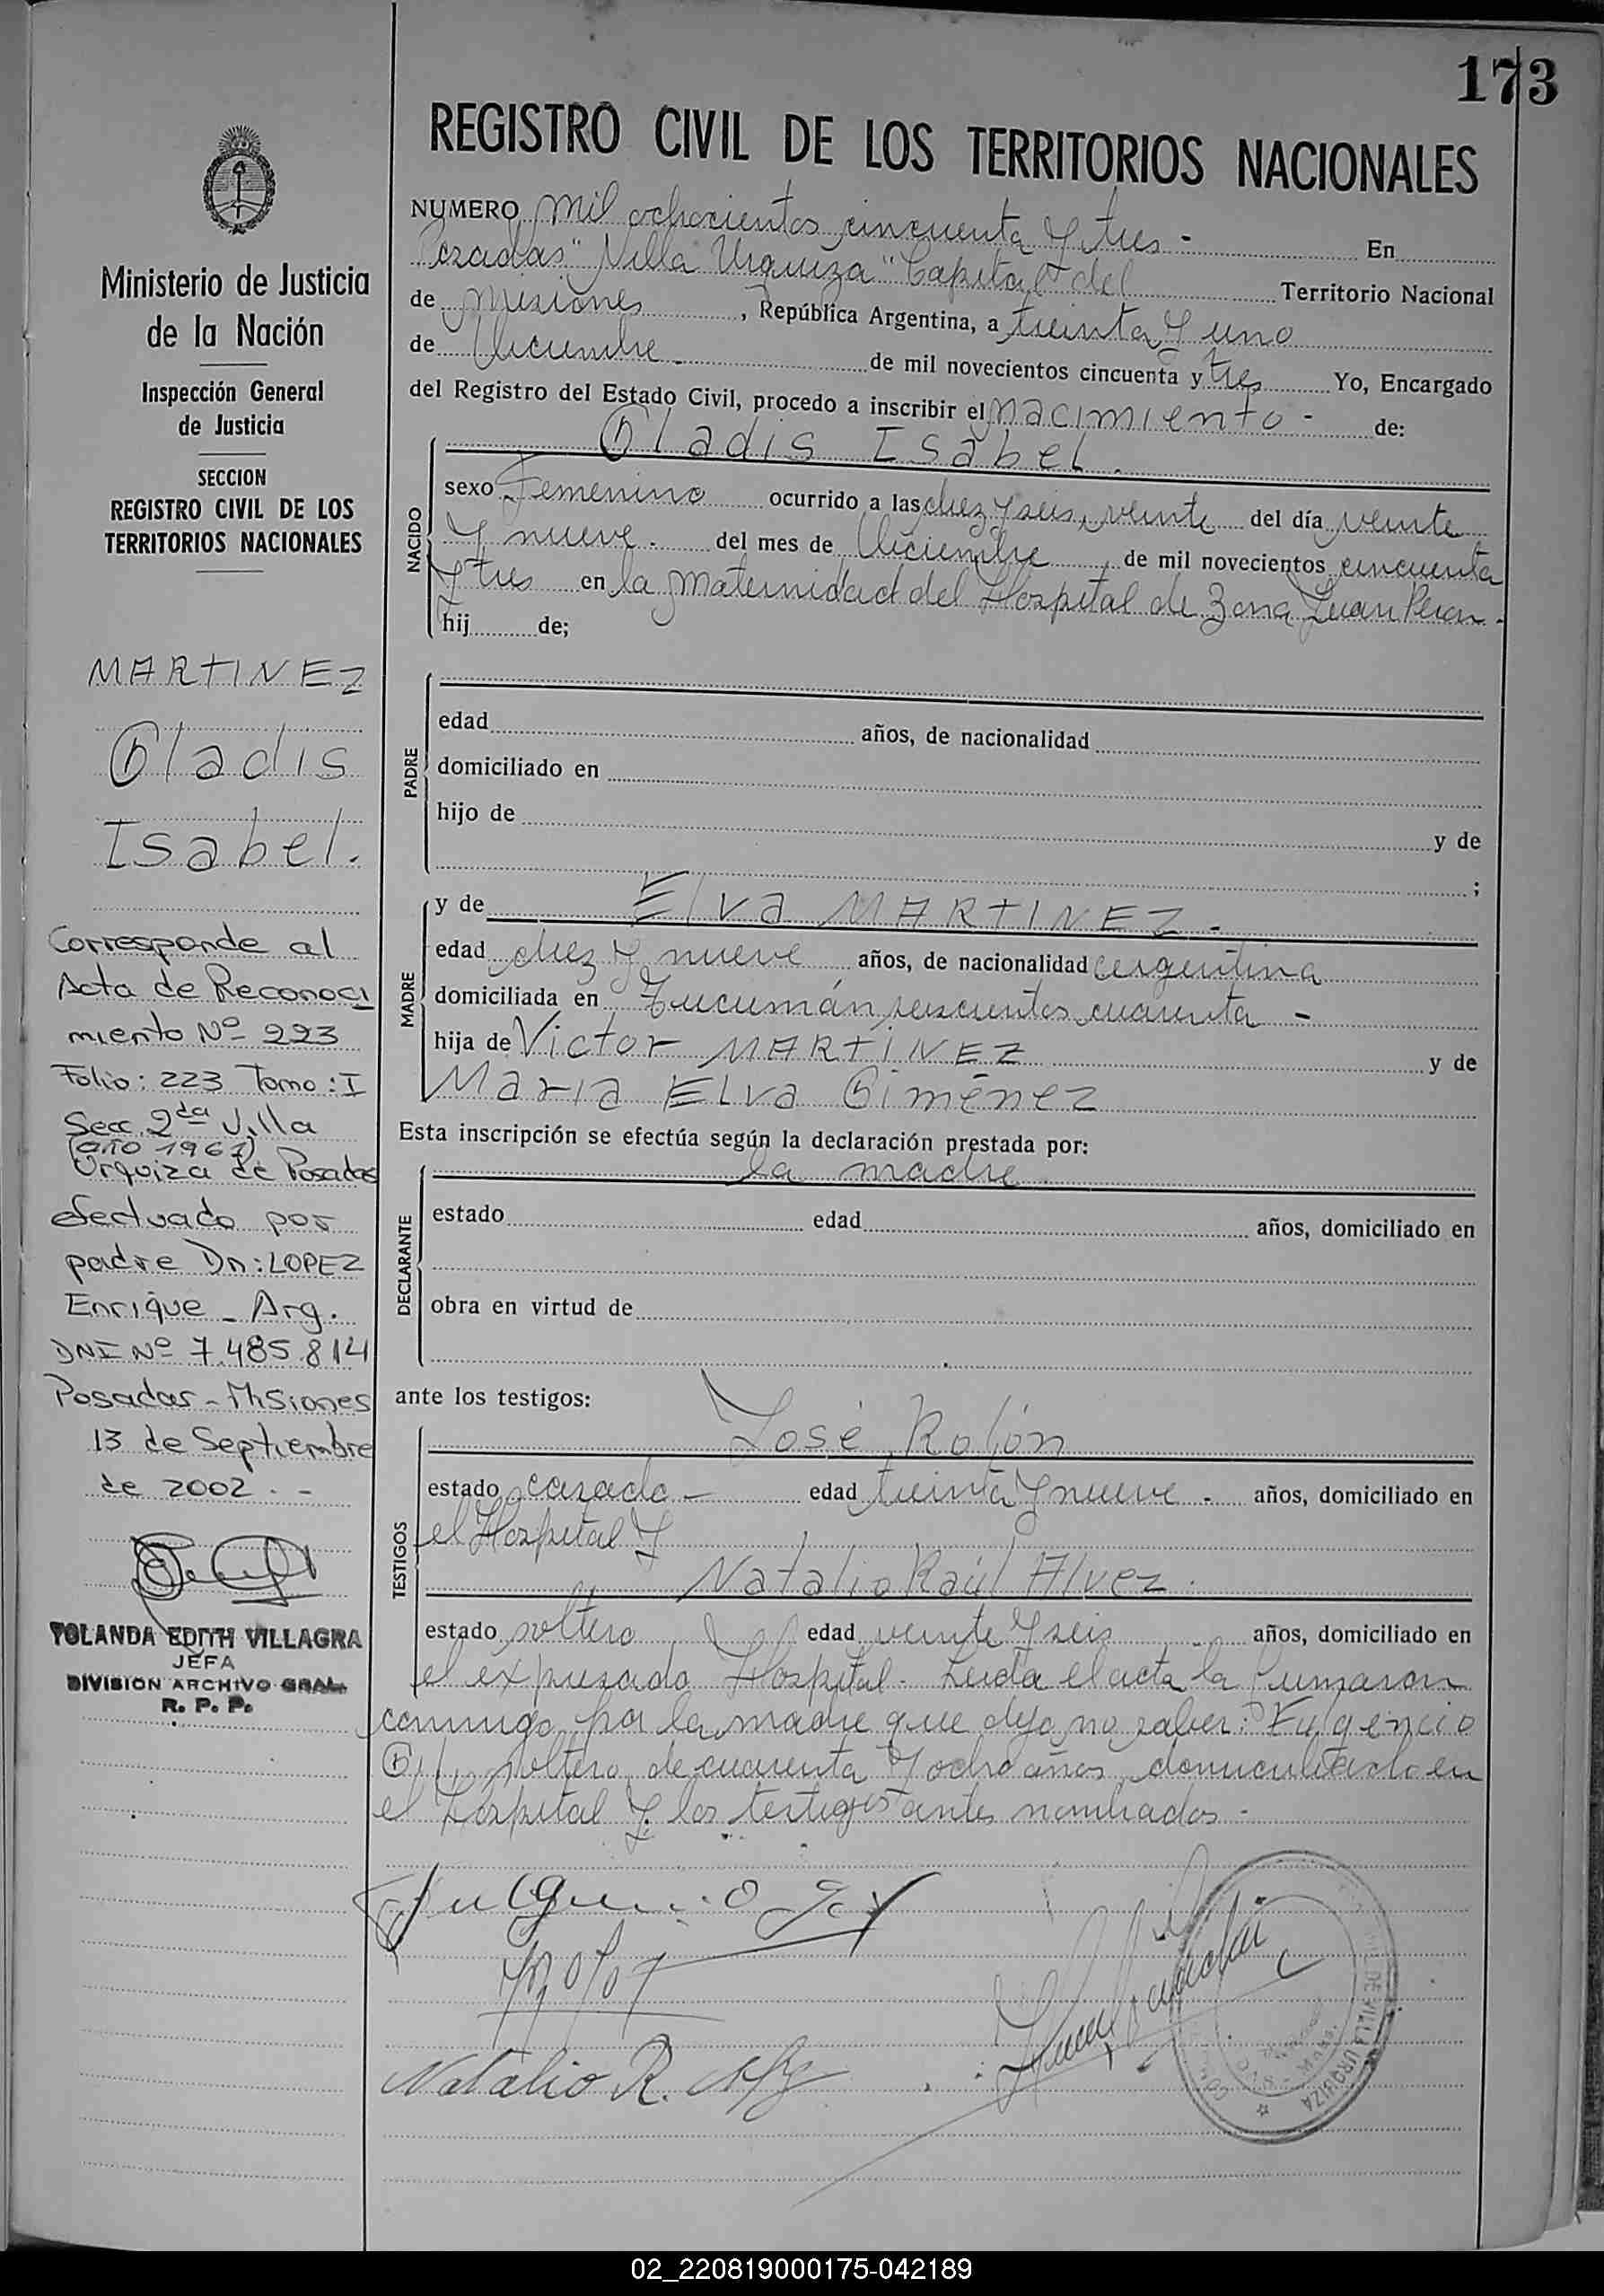 173
REGISTRO CIVIL DE LOS TERRITORIOS NACIONALES
NUMERO mil ochocientos cincuenta y tres - En
Posadas "Villa Urquiza" Capital del Territorio Nacional
de Misiones, República Argentina, a treinta y uno
de Diciembre - de mil novecientos cincuenta y tres Yo, Encargado
del Registro del Estado Civil, procedo a inscribir el nacimiento - de:
Gladis Isabel.
NACIDO
sexo Femenino ocurrido a las diez y seis, veinte del día veinte
y nueve. del mes de Diciembre de mil novecientos cincuenta
y tres en la Maternidad del Hospital de Zona Juan Peron -
hij de;
PADRE
edad años, de nacionalidad
domiciliado en
hijo de y de
;
MADRE
y de Elva MARTINEZ -
edad diez y nueve años, de nacionalidad argentina
domiciliada en Tucumán seiscientos cuarenta -
hija de Victor MARTINEZ y de
Maria Elva Giménez
Esta inscripción se efectúa según la declaración prestada por:
la madre
DECLARANTE
estado edad años, domiciliado en
obra en virtud de
ante los testigos:
José Rolón
TESTIGOS
estado casado - edad treinta y nueve - años, domiciliado en
el Hospital y
Natalio Raúl Alvez.
estado soltero edad veinte y seis años, domiciliado en
el expresado Hospital. Leida el acta la firmaron
conmigo, por la madre que dijo no saber: Fulgencio
soltero, de cuarenta y ocho años, domiciliado en
el Hospital y los testigos antes nombrados -
Natalio R.
DE VILLA URQUIZA
Ministerio de Justicia
de la Nación
Inspección General
de Justicia
SECCION
REGISTRO CIVIL DE LOS
TERRITORIOS NACIONALES
MARTINEZ
Gladis
Isabel.
Corresponde al
Acta de Reconoci
miento Nº 223
Folio: 223 Tomo: I
Secc. 2da Villa
(año 1967)
Urquiza de Posadas
efectuado por
padre Dn: LOPEZ
Enrique - Arg.
DNI Nº 7.485.814
Posadas - Misiones
13 de Septiembre
de 2002. -
YOLANDA EDITH VILLAGRA
JEFA
DIVISION ARCHIVO GRAL.
R. P. P.
02_220819000175-042189